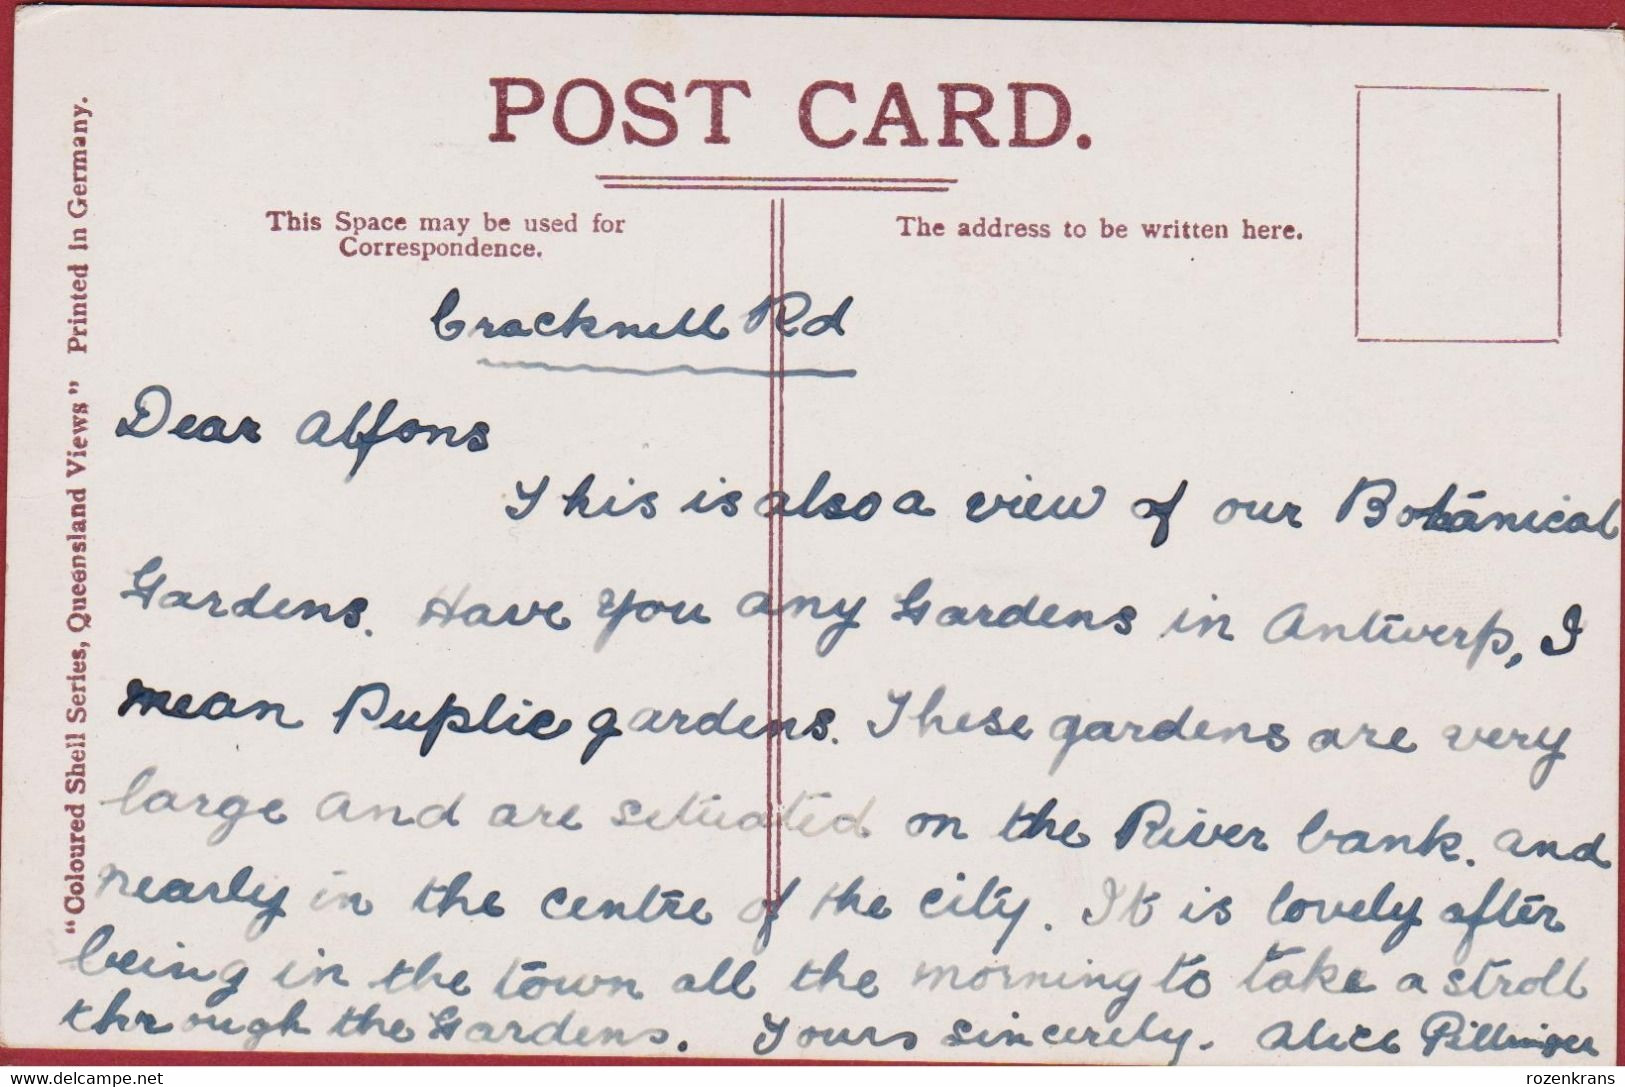 POST CARD.
This Space may be used for
Correspondence.
The address to be written here.
"Coloured Shell Series, Queensland Views" Printed in Germany.
Cracknell Rd
Dear Alfons
This is also a view of our Botanical
Gardens. Have you any Gardens in Antwerp, I
mean Puplic gardens. These gardens are very
large and are situated on the River bank. and
nearly in the centre of the city. It is lovely after
being in the town all the morning to take a stroll
through the Gardens. Yours sincerely. Alice Pillinger
rozenkrans
delcampe.net